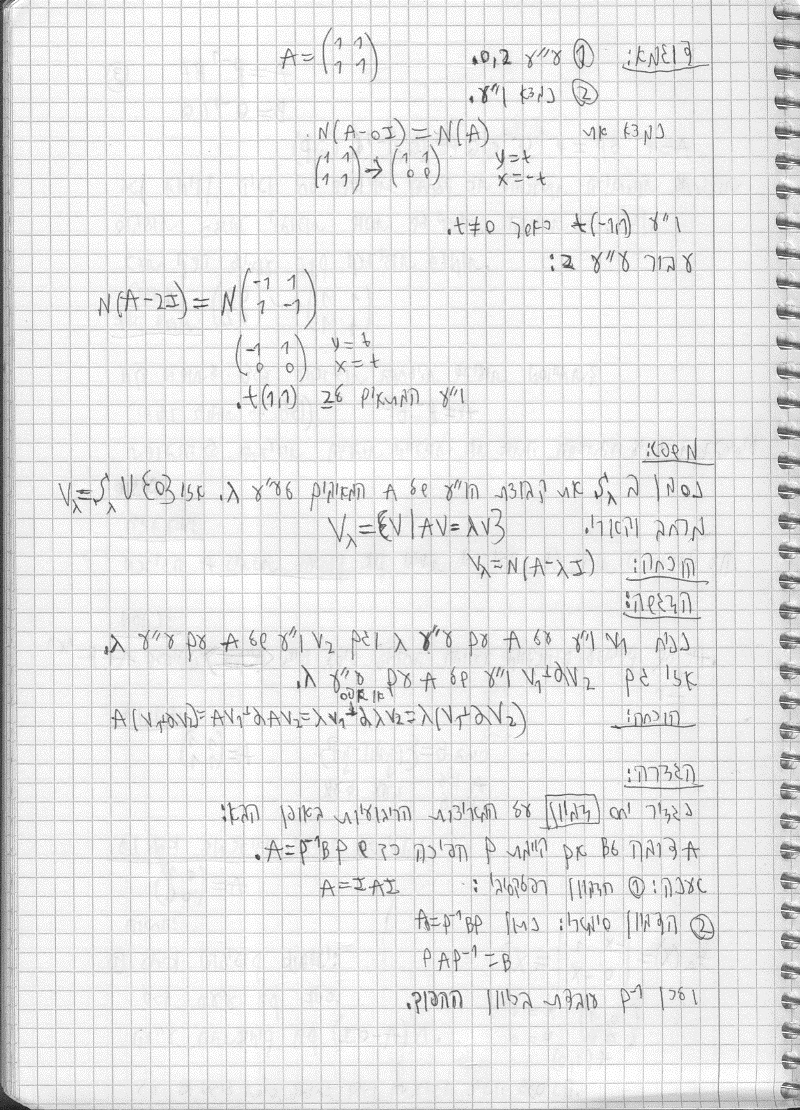 דוגמא: ① ע"ע 0,2. A = (1 1 / 1 1)
② נמצא ו"ע.
נמצא את N(A-0I) = N(A).
(1 1 / 1 1) → (1 1 / 0 0) y=t x=-t
ו"ע t(-1,1) כאשר t≠0.
עבור ע"ע 2:
N(A-2I) = N(-1 1 / 1 -1)
(-1 1 / 0 0) y=t x=t
ו"ע המתאים ל2 t(1,1).
משפט:
נסמן ב ζλ את קבוצת הו"ע של A המאימים לע"ע λ. אזי Vλ=ζλ∪{0}
מרחב וקטורי. Vλ={V|AV=λV}
הוכחה: Vλ=N(A-λI)
הדגשה:
נניח V1 ו"ע של A עם ע"ע λ וגם V2 ו"ע של A עם ע"ע λ.
אזי גם V1+αV2 ו"ע של A עם ע"ע λ.
או אפס
הוכחה: A(V1+αV2)=AV1+αAV2=λV1+αλV2=λ(V1+αV2)
הגדרה:
נגדיר יחס דמיון על המטריצות הריבועיות באופן הבא:
A דומה לB אם קיימת P הפיכה כך ש A=P⁻¹BP.
טענה: ① הדמיון רפלקסיבי: A=IAI
② הדמיון סימטרי: נתון A=P⁻¹BP
PAP⁻¹=B
ולכן P⁻¹ עובדת בכיוון ההפוך.